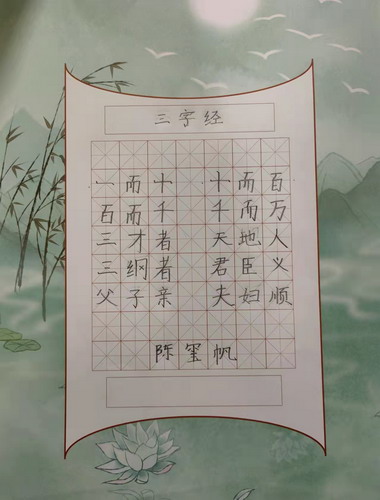 三字经
一而十 十而百
百而千 千而万
三才者 天地人
三纲者 君臣义
父子亲 夫妇顺
陈玺帆